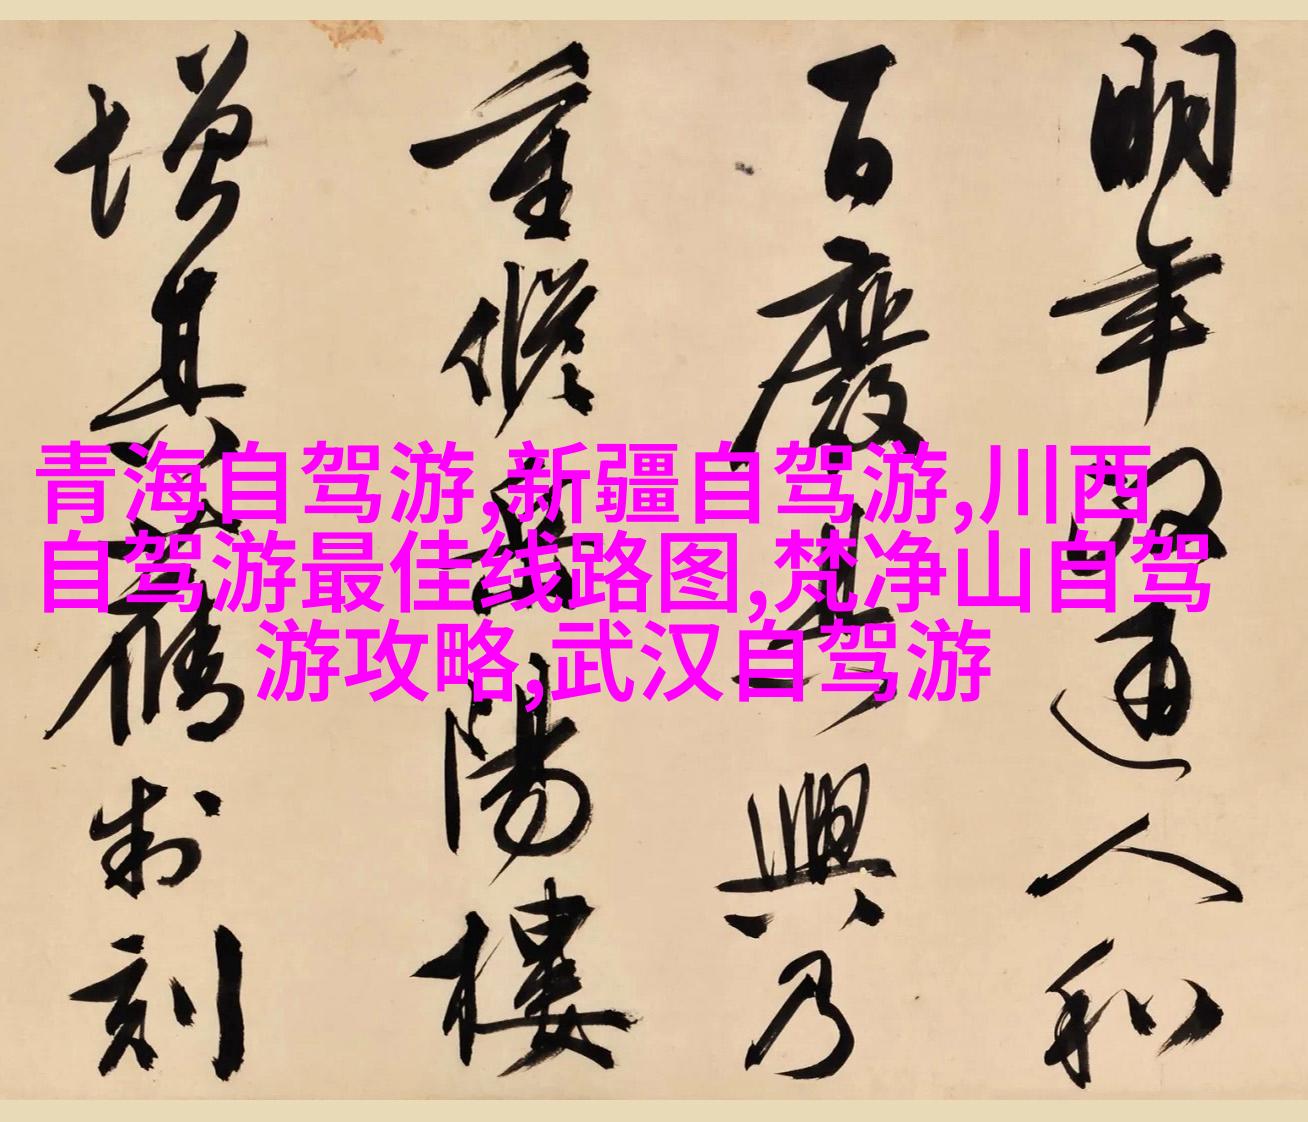 明年政通人和
百廢具興乃
重脩岳陽樓
增其舊制刻
青海自驾游,新疆自驾游,川西
自驾游最佳线路图,梵净山自驾
游攻略,武汉自驾游